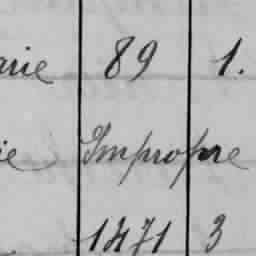 arie 89 1.
ie Impropre
1471 3